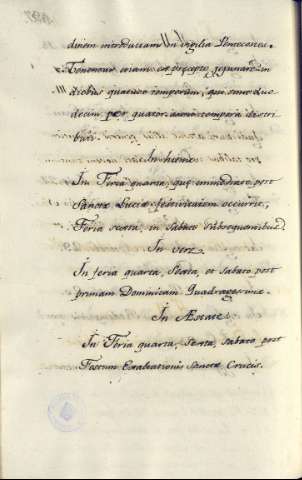 dinem introductam in vigilia Pentecostes.
Tenemur etiam ex præcepto jejunare in
diebus quatuor temporum, qui sunt duo
decim per quatuor anni tempora distri
buti.
In hieme
In Feria quarta, quæ immediate post
Sanctæ Luciæ festivitatem occurrit,
Feria sexta, in sabato subsequentibus
In vere
In feria quarta, Sexta, et sabato post
primam Dominicam Quadragesimæ.
In Æstate
In Feria quarta, sexta, sabato post
Festum Exaltationis Sanctæ Crucis.